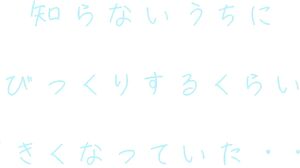 知らないうちに
びっくりするくらい
きくなっていた・・